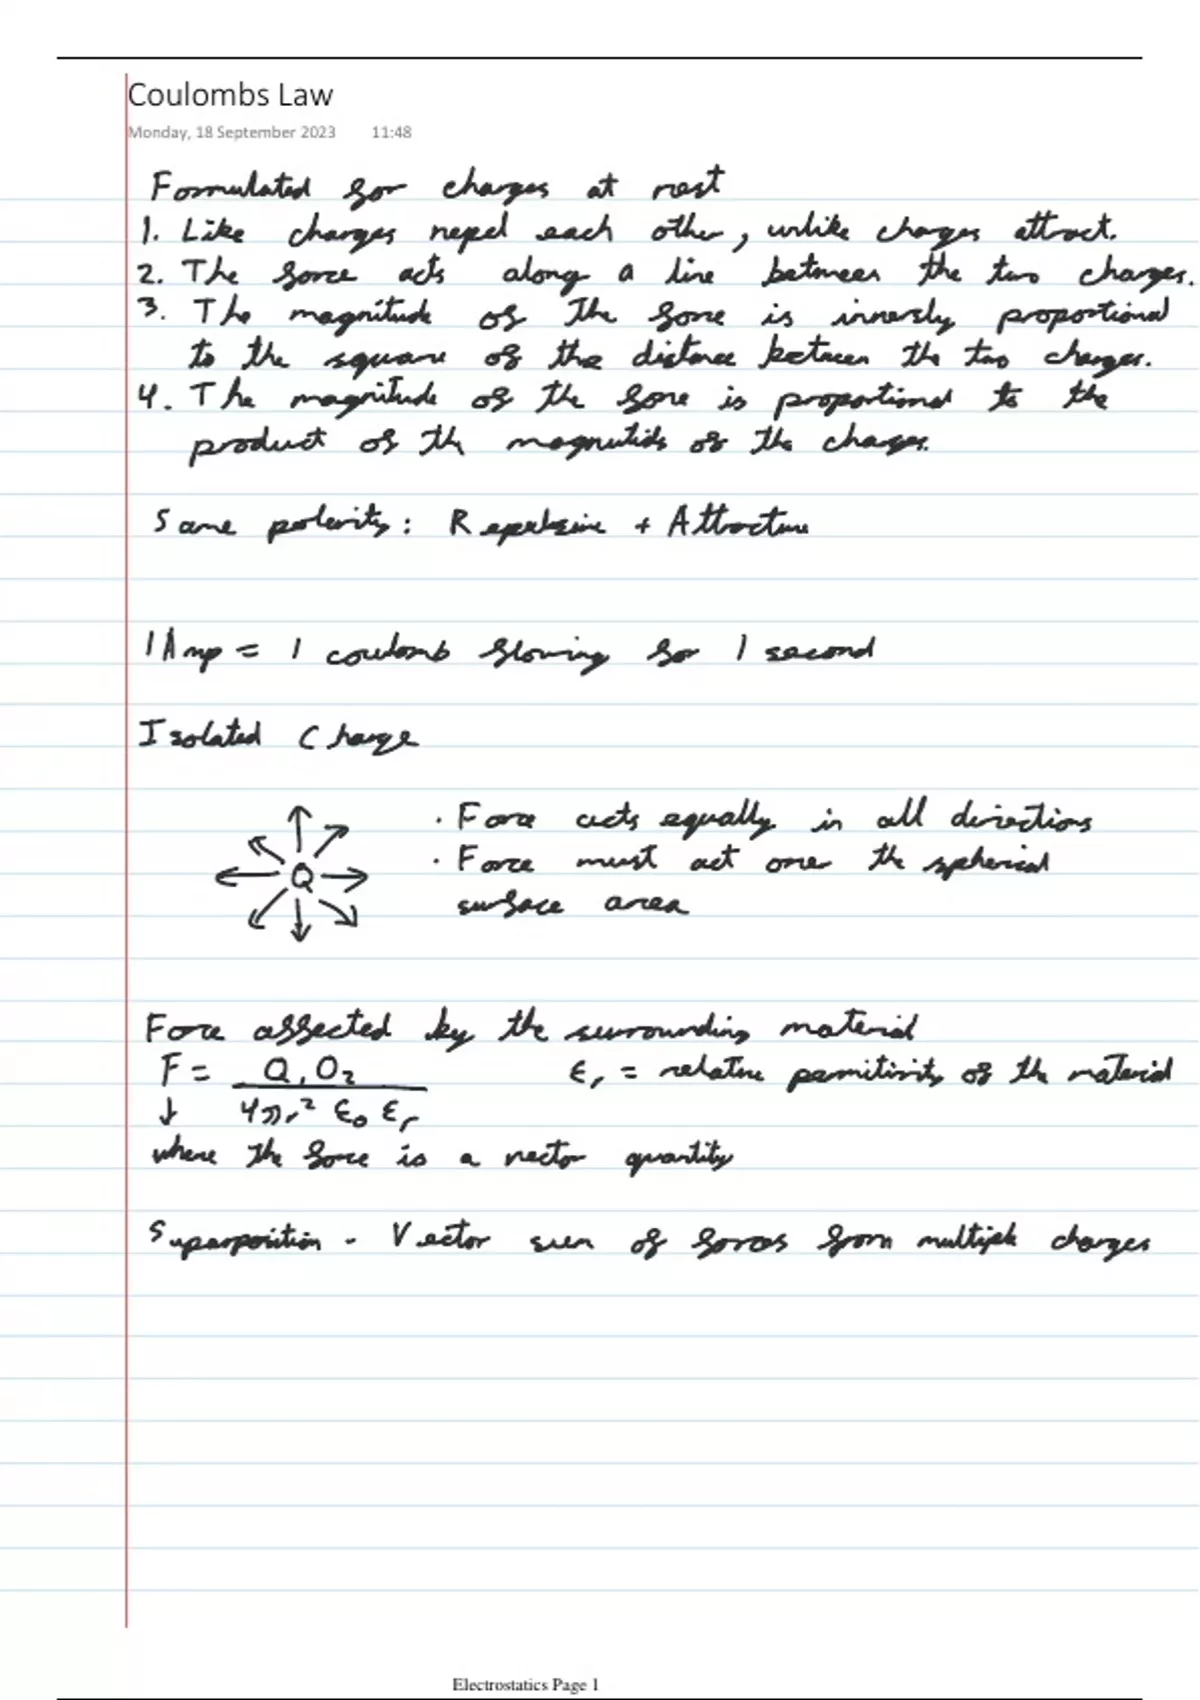 Coulombs Law
Monday, 18 September 2023 11:48
Formulated for charges at rest
1. Like charges repel each other, unlike charges attract.
2. The force acts along a line between the two charges.
3. The magnitude of the force is inversly proportional
to the square of the distance between the two charges.
4. The magnitude of the force is proportional to the
product of the magnitudes of the charges.
Same polarity: Repulsive + Attractive
1 Amp = 1 coulomb flowing for 1 second
Isolated Charge
· Force acts equally in all directions
· Force must act over the spherical
surface area
Q
Force affected by the surrounding material
F = Q₁Q₂ εᵣ = relative permitivity of the material
↓ 4πr² ε₀ εᵣ
where the force is a vector quantity
Superposition - Vector sum of forces from multiple charges
Electrostatics Page 1